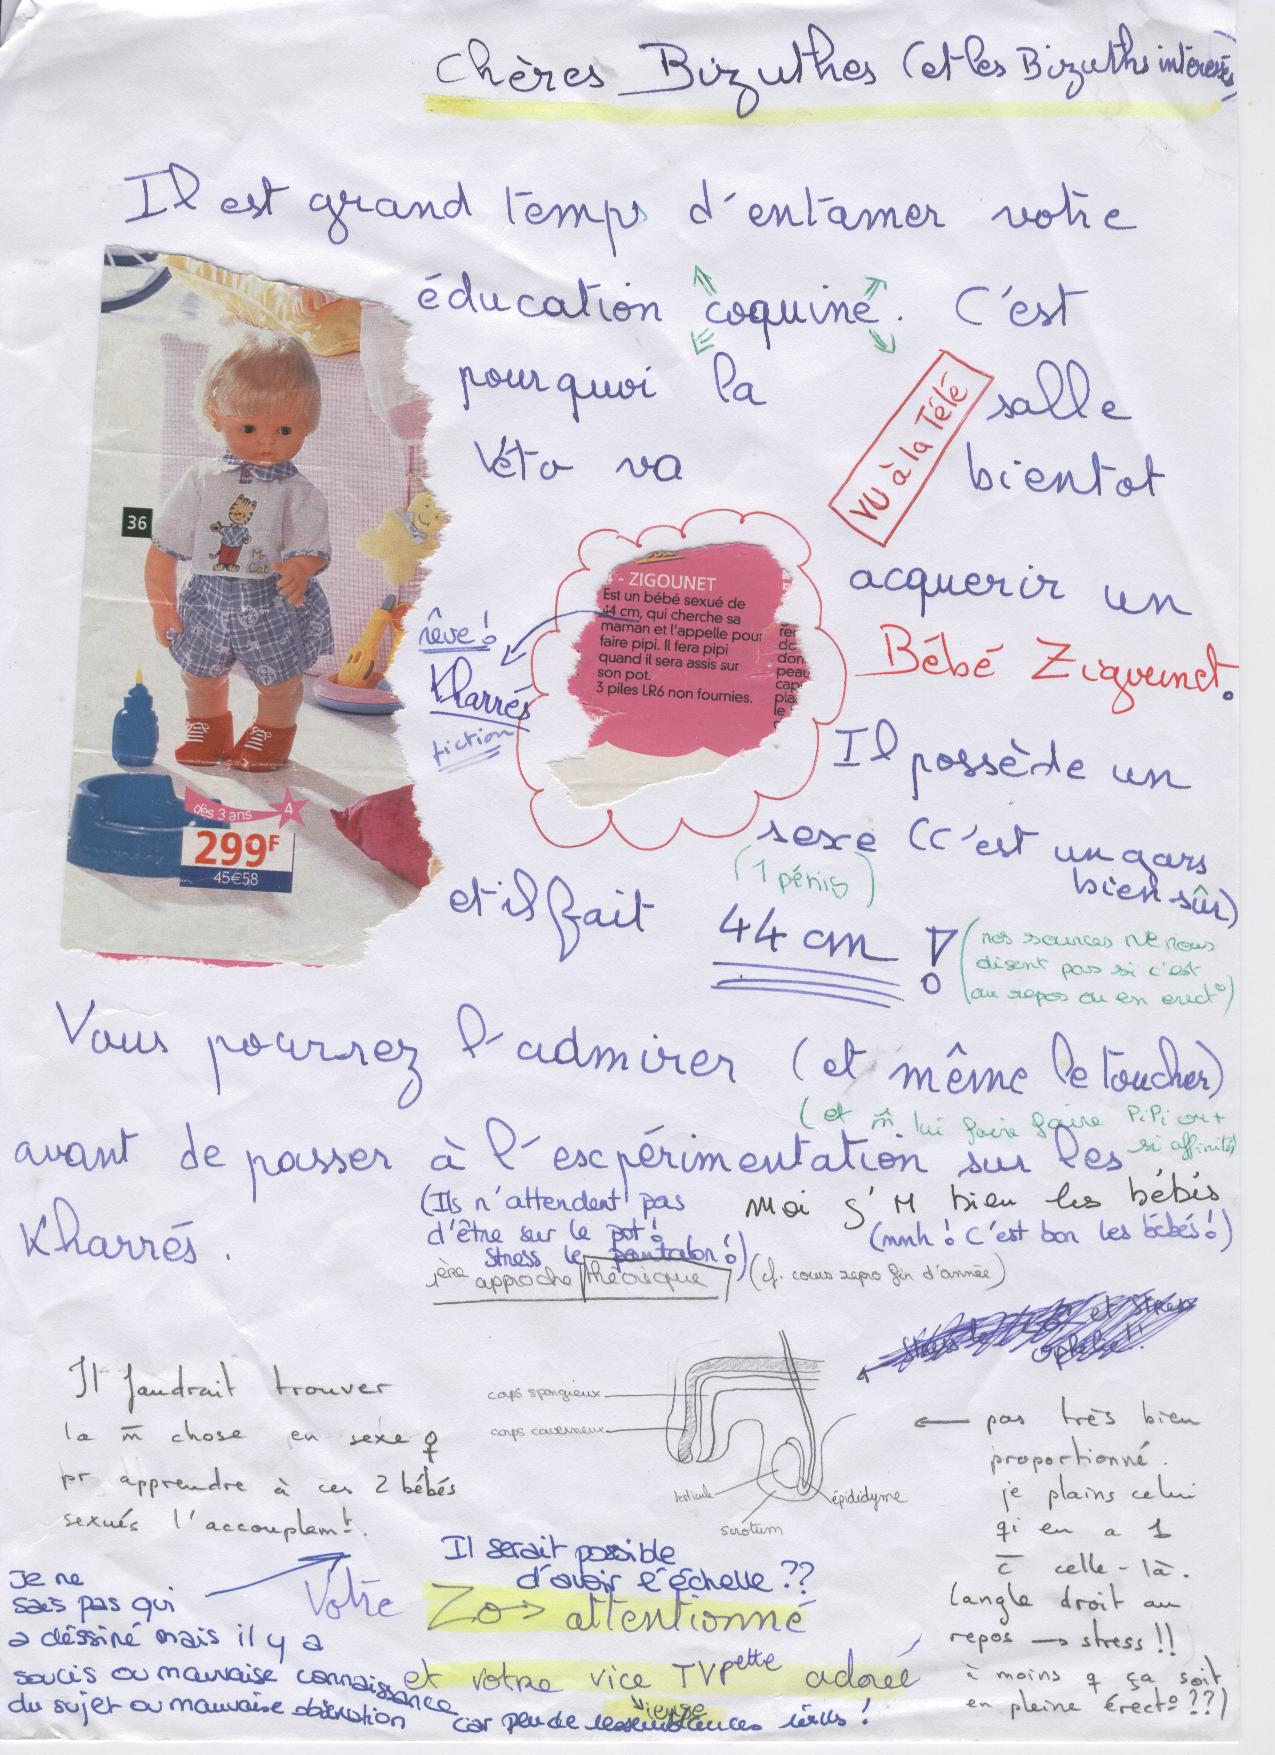 Chères Bizuthes (et les Bizuths intéressés)
Il est grand temps d'entamer votre
éducation coquine. C'est
pourquoi la salle
Véto va bientot
VU à la Télé
acquerir un
Bébé Zigounet.
36
4 - ZIGOUNET
Est un bébé sexué de
44 cm, qui cherche sa
maman et l'appelle pour
faire pipi. Il fera pipi
quand il sera assis sur
son pot.
3 piles LR6 non fournies.
rêve !
Kharrés
fiction
dès 3 ans 4
299F
45€58
Il possède un
sexe (c'est un gars
bien sûr)
(1 pénis)
et il fait 44 cm !
(nos sources ne nous
disent pas si c'est
au repos ou en erect°)
Vous pourrez l'admirer (et même le toucher)
(et m̄ lui faire faire PiPi ou +
si affinités)
avant de passer à l'expérimentation sur les
Kharrés.
(Ils n'attendent pas
d'être sur le pot !
stress le pantalon !)
Moi J'M bien les bébés
(mmh ! C'est bon les bébés !)
1ère approche théorique (cf. cours repro fin d'année)
Il faudrait trouver
la m̄ chose en sexe ♀
pr apprendre à ces 2 bébés
sexués l'accouplemt.
corps spongieux
corps caverneux
testicule
scrotum
épididyme
← pas très bien
proportionné.
je plains celui
qi en a 1
c̄ celle-là.
(angle droit au
repos → stress !!
à moins q ça soit
en pleine érect° ??)
Il serait possible
d'avoir l'échelle ??
Je ne
sais pas qui
a déssiné mais il y a
soucis ou mauvaise connaissance
du sujet ou mauvaise observation
car peu de ressemblances
Votre Zo attentionné
et votre vice TVPette adorée
vieuse